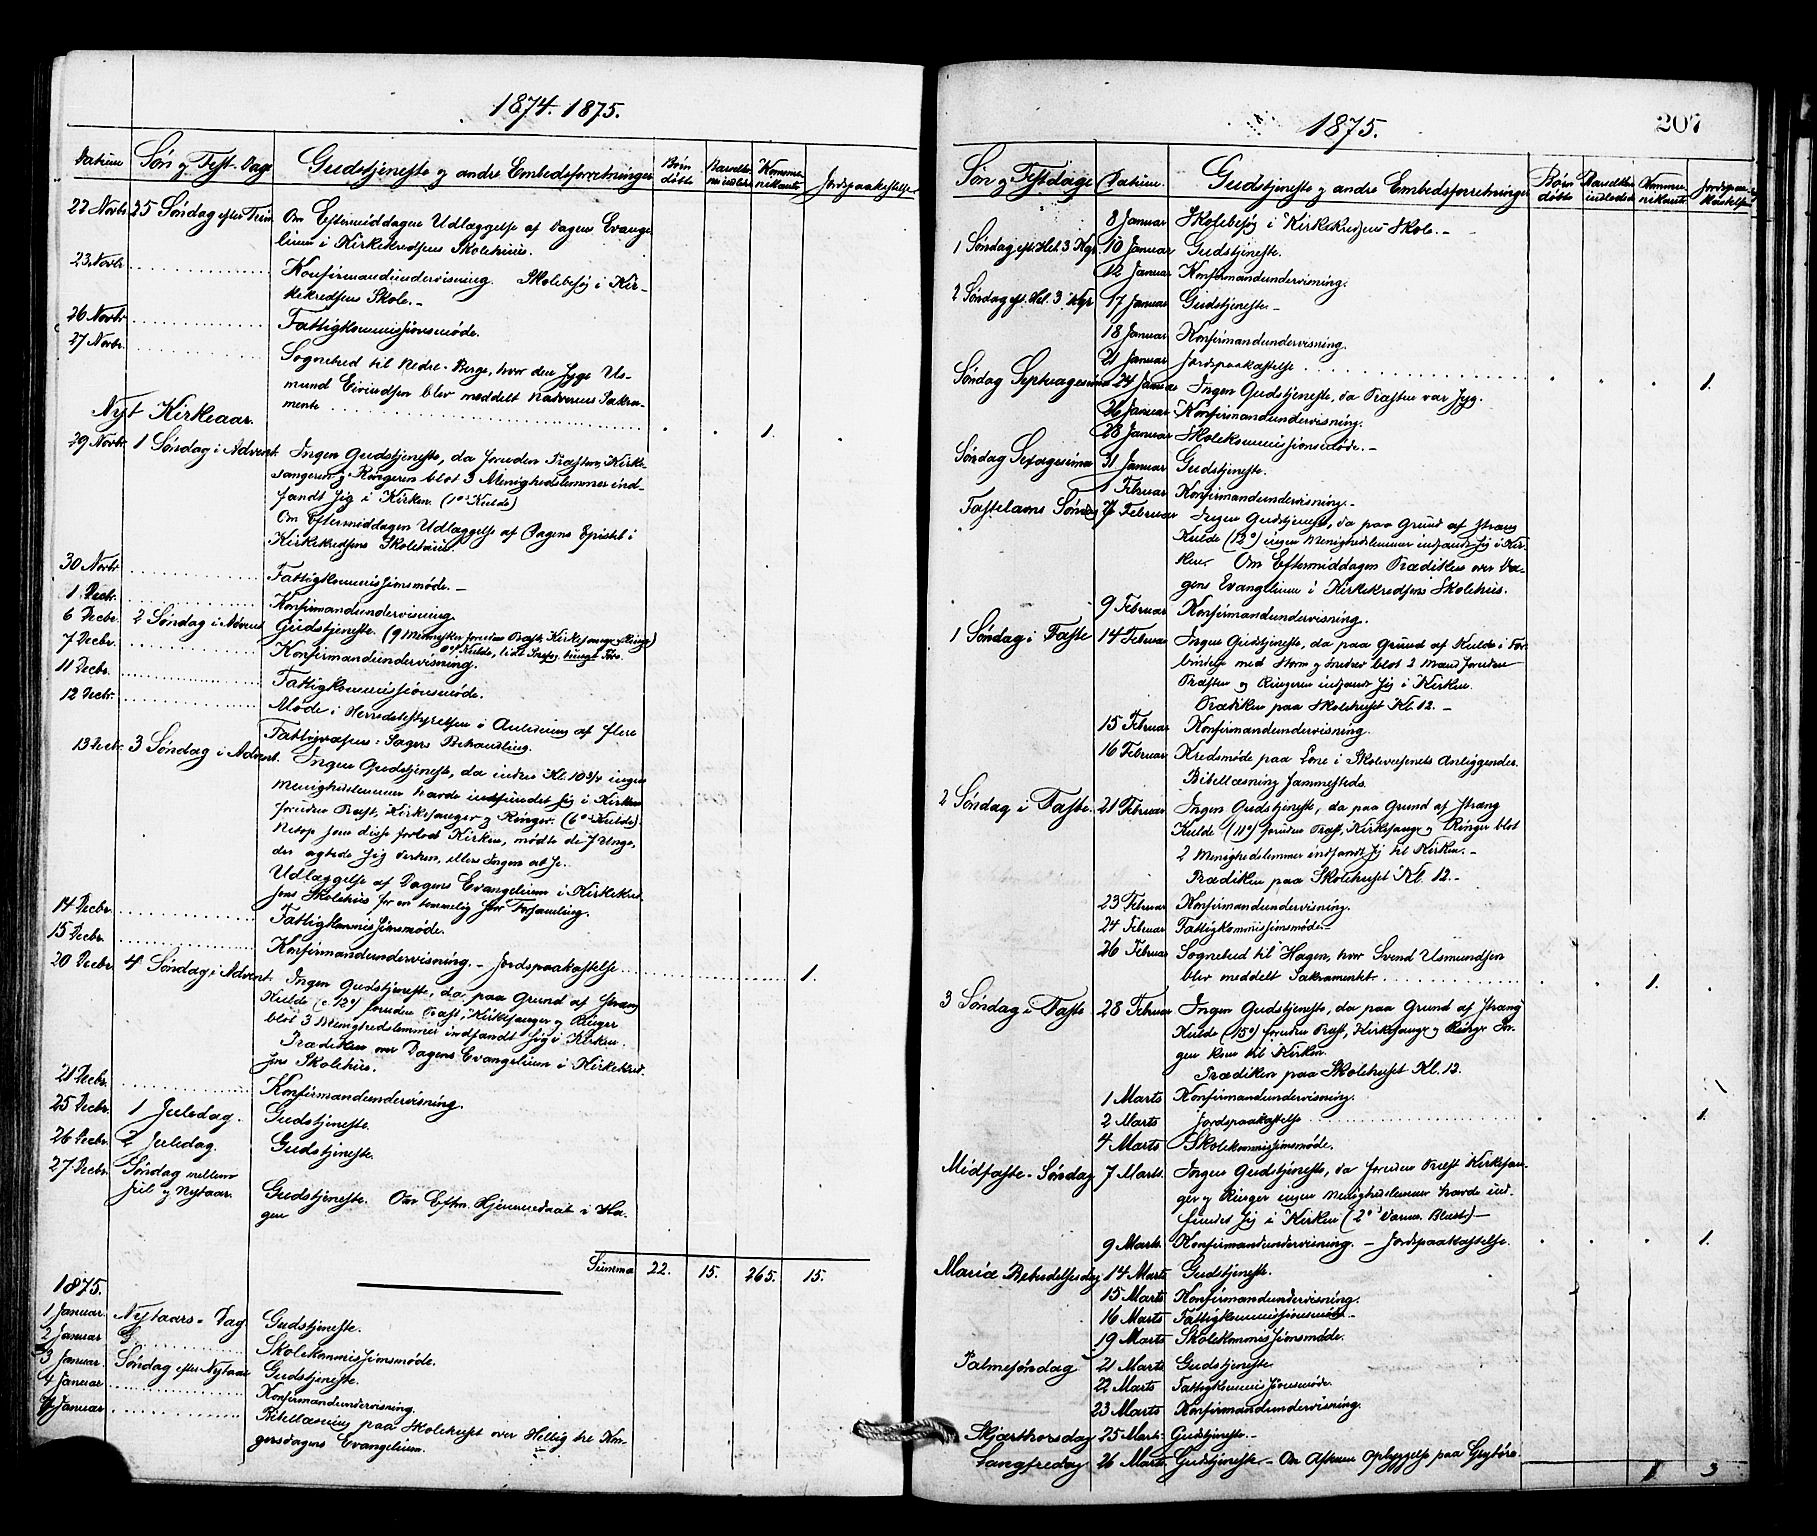 1874. 1875.
Datum Søn og Fest-Dage Gudstjeneste og andre Embedsforretninger Børn døbte Barselkv. indledte Kommunikanter Jordspaakastelse
22 Novbr 25 Søndag efter Trin. Om Eftermiddagen Udlæggelse af Dagens Evange-
lium i Kirkekredsens Skolehuus.
23. Novbr Konfirmandundervisning. Skolebesøg i Kir-
kekredsens Skole.-
26 Novbr Fattigkommissionsmøde.
27 Novbr. Sognebud til Nedre-Berge, hvor den syge Us-
mund Eivindsen blev meddelt Nadverens Sakra-
mente 1.
Nyt Kirkeaar.
29 Novbr. 1 Søndag i Advent. Ingen Gudstjeneste, da foruden Præsten, Kirke-
sangeren og Ringeren blot 3 Menighedslemmer ind-
fandt sig i Kirken. (10° Kulde)
Om Eftermiddagen Udlæggelse af Dagens Epistel i
Kirkekredsens Skolehuus.
30 Novbr Fattigkommissionsmøde.-
1. Decbr. Konfirmandundervisning.
6 Decbr. 2 Søndag i Advent Gudstjeneste. (9 Mennesker foruden Præst, Kirkesanger og Ringer)
7 Decbr. Konfirmandundervisning.
11 Decbr. Fattigkommissionsmøde.
12 Decbr. Møde i Herredsbestyrelsen i Anledning af flere
Fattigvæsens-Sagers Behandling.
13 Decbr. 3 Søndag i Advent. Ingen Gudstjeneste, da inden Kl. 10 3/4 ingen
Menighedslemmer havde indfundet sig i Kirken
foruden Præst, Kirkesanger og Ringer. (6° Kulde)
Netop som disse forlod Kirken, mødte de 7 Unge,
der agtede sig derhen, ellers Ingen at se.
Udlæggelse af Dagens Evangelium i Kirkekred-
sens Skolehuus for en temmelig stor Forsamling.
14 Decbr. Fattigkommissionsmøde.
15 Decbr. Konfirmandundervisning. - Jordspaakastelse 1.
20 Decbr. 4 Søndag i Advent. Ingen Gudstjeneste, da paa Grund af stræng
Kulde (c. 12°) foruden Præst, Kirkesanger og Ringer
blot 3 Menighedslemmer indfandt sig i Kirken.
Prædiken over Dagens Evangelium i Kirkekred-
sens Skolehuus.
21 Decbr. Konfirmandundervisning.
25 Decbr. 1 Juledag. Gudstjeneste.
26 Decbr. 2 Juledag. Gudstjeneste.
27 Decbr. Søndag mellem
Jul og Nytaar. Gudstjeneste. Om Eftm. Hjemmedaab i Ha-
gen
Summa 22. 15. 265. 15.
1875.
1 Januar. Nytaars-Dag Gudstjeneste.
2 Januar Skolekommissionsmøde.
3 Januar. Søndag efter Nytaar Gudstjeneste.
4 Januar Konfirmandundervisning.
Januar Bibellæsning paa Skolehuset over Hellig tre Kon-
gersdagens Evangelium.
1875. 207
Søn og Festdage Datum. Gudstjeneste og andre Embedsforretninger Børn døbte Barselkv. indledte Kommunikanter Jordspaakastelse
8 Januar Skolebesøg i Kirkekredsens Skole.-
1 Søndag eft. Hel. 3 Kgr. 10 Januar Gudstjeneste.
12 Januar Konfirmandundervisning.
2 Søndag eft. Hel. 3 Kgr. 17 Januar Gudstjeneste.-
18 Januar Konfirmandundervisning.
21 Januar Jordspaakastelse 1.
Søndag Septuagesima 24 Januar Ingen Gudstjeneste, da Præsten var syg.
26 Januar Konfirmandundervisning.
28 Januar Skolekommissionsmøde.-
Søndag Sexagesima 31 Januar Gudstjeneste.
1 Februar Konfirmandundervisning.
Fastelavns Søndag 7 Februar Ingen Gudstjeneste, da paa Grund af stræng
Kulde (12°) ingen Menighedslemmer indfandt sig i Kir-
ken. Om Eftermiddagen Prædiken over Da-
gens Evangelium i Kirkekredsens Skolehus.
9 Februar Konfirmandundervisning.
1 Søndag i Faste 14 Februar Ingen Gudstjeneste, da paa Grund af Kulde i For-
bindelse med Storm og Snedrev blot 2 Mænd foruden
Præsten og Ringeren indfandt sig i Kirken.
Prædiken paa Skolehuset Kl. 12.-
15 Februar Konfirmandundervisning.
16 Februar Kredsmøde paa Lone i Skolevæsenets Anliggender.
Bibellæsning sammesteds.
2 Søndag i Faste. 21 Februar Ingen Gudstjeneste, da paa Grund af stræng
Kulde (11°) foruden Præst, Kirkesanger og Ringer blot
2 Menighedslemmer indfandt sig til Kirken.-
Prædiken paa Skolehuset Kl. 12.-
23 Februar Konfirmandundervisning.
24 Februar Fattigkommissionsmøde.-
26 Februar Sognebud til Hagen, hvor Svend Usmundsen
blev meddelt Sakramentet 1.
3 Søndag i Faste 28 Februar Ingen Gudstjeneste, da paa Grund af stræng
Kulde (15°) foruden Præst, Kirkesanger og Ringer In-
gen kom til Kirken.
Prædiken paa Skolehuset Kl. 12.
1 Marts Konfirmandundervisning.
2 Marts Jordspaakastelse 1.
4 Marts Skolekommissionsmøde.
Midfaste-Søndag 7 Marts. Ingen Gudstjeneste, da foruden Præst Kirkesan-
ger og Ringer ingen Menighedslemmer havde ind-
fundet sig i Kirken (2° Varme. Blæst)-
9 Marts. Konfirmandundervisning. - Jordspaakastelse. 1.
Mariæ Bebudelsesdag 14 Marts Gudstjeneste.
15 Marts Konfirmandundervisning.
16 Marts Fattigkommissionsmøde.-
19 Marts Skolekommissionsmøde.
Palmesøndag 21 Marts Gudstjeneste
22 Marts Fattigkommissionsmøde.
23 Marts Konfirmandundervisning.
Skjærthorsdag 25 Marts. Gudstjeneste.-
Langfredag 26 Marts. Gudstjeneste.- Om Aftenen Opbyggelse paa
1 3